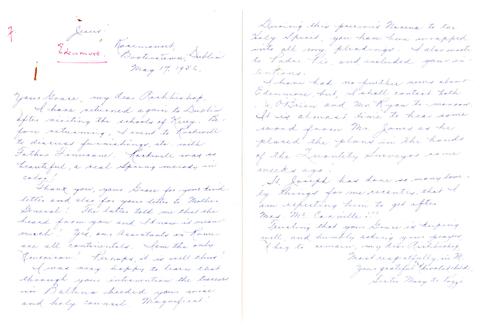 Jesus!
Edenmore.
Rosemount,
Booterstown, Dublin
May 17, 1956.
Your Grace, my dear Archbishop,
I have returned again to Dublin
after visiting the schools of Kerry. Be-
fore returning, I went to Rockwell
to discuss furnishings etc with
Father Finucane. Rockwell was so
beautiful, a real Spring melody in
color!
Thank you, your Grace for your kind
letter and also for your letter to Mother
General! The latter told me that she
heard from you and I know it was
much! Yes, our Assistants in Rome
are all continentals. Am the only
American! Perhaps, it is well thus!
I was very happy to learn that
through your intervention the
in Ballina heeded your wise
and holy counsel. Magnificat!
During this precious Novena to the
Holy Spirit, you have been wrapped
into all my pleadings. I also wrote
to Padre Pio, and included your in-
tentions.
I have had no further news about
Edenmore but I shall contact both
O'Brien and Mr Ryan to-morrow.
It is almost time to hear some
word from Mr Jones as he
placed the plans in the hands
of the Quantity Surveyor some
weeks ago.
St. Joseph has done so many love-
ly things for me recently, that I
am inspiring him to get after
Mr Mc
Trusting that your Grace is keeping
well, and humbly asking your blessing
I beg to remain, my dear Archbishop
Most respectfully in
Your grateful
Sister Mary